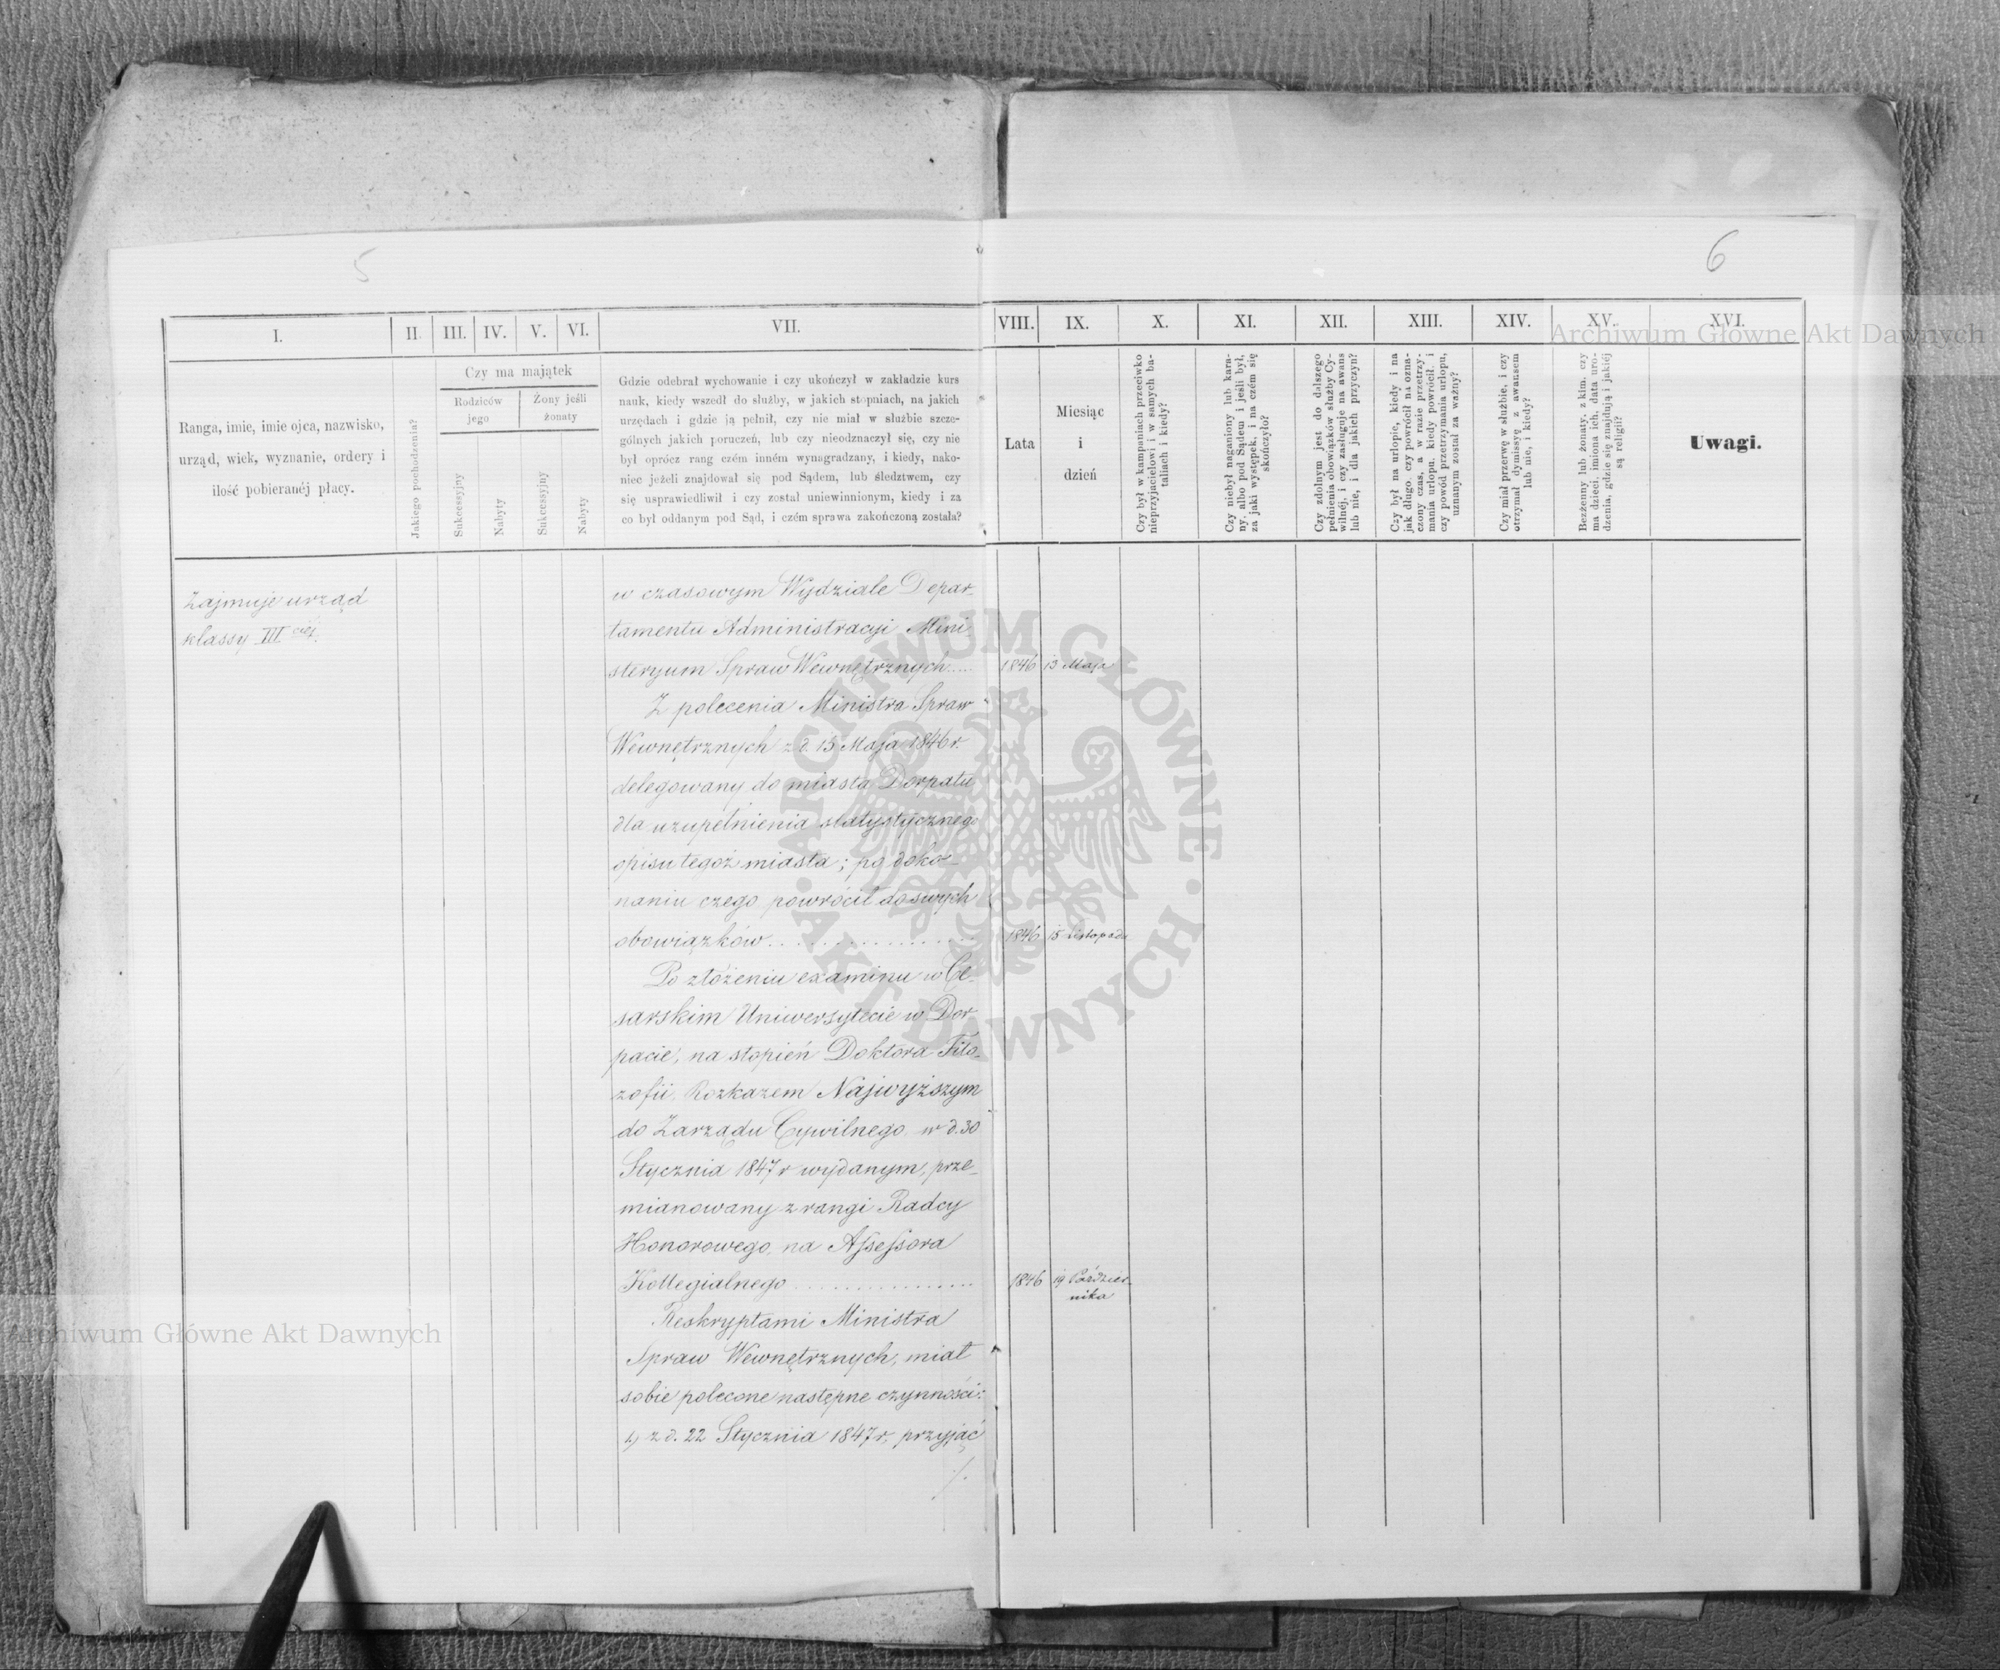 5
6
I.
II.
III.
IV.
V.
VI.
VII.
VIII.
IX.
X.
XI.
XII.
XIII.
XIV.
XV.
XVI.
Ranga, imie, imie ojca, nazwisko,
urząd, wiek, wyznanie, ordery i
ilość pobieranéj płacy.
Jakiego pochodzenia?
Czy ma majątek
Rodziców
jego
Żony jeśli
żonaty
Sukcessyjny
Nabyty
Sukcessyjny
Nabyty
Gdzie odebrał wychowanie i czy ukończył w zakładzie kurs
nauk, kiedy wszedł do służby, w jakich stopniach, na jakich
urzędach i gdzie ją pełnił, czy nie miał w służbie szcze-
gólnych jakich poruczeń, lub czy nieodznaczył się, czy nie
był oprócz rang czém inném wynagradzany, i kiedy, nako-
niec jeżeli znajdował się pod Sądem, lub śledztwem, czy
się usprawiedliwił i czy został uniewinnionym, kiedy i za
co był oddanym pod Sąd, i czém sprawa zakończoną została?
Lata
Miesiąc
i
dzień
Czy był w kampaniach przeciwko
nieprzyjacielowi i w samych ba-
taliach i kiedy?
Czy niebył naganiony lub kara-
ny, albo pod Sądem i jeśli był,
za jaki występek, i na czém się
skończyło?
Czy zdolnym jest do dalszego
pełnienia obowiązków służby Cy-
wilnéj, i czy zasługuje na awans
lub nie, i dla jakich przyczyn?
Czy był na urlopie, kiedy i na
jak długo, czy powrócił na ozna-
czony czas, a w razie przetrzy-
mania urlopu, kiedy powrócił, i
czy powód przetrzymania urlopu,
uznanym został za ważny?
Czy miał przerwę w służbie, i czy
otrzymał dymissyę z awansem
lub nie, i kiedy?
Bezżenny lub żonaty, z kim, czy
ma dzieci, imiona ich, data uro-
dzenia, gdzie się znajdują i jakiéj
są religii?
Uwagi.
Zajmuje urząd
klassy III ciéj.
w czasowym Wydziale Depar-
tamentu Administracyi Mini-
steryum Spraw Wewnętrznych.... 1846 13 Maja
Z polecenia Ministra Spraw
Wewnętrznych z d. 15 Maja 1846 r.
delegowany do miasta Dorpatu
dla uzupełnienia statystycznego
opisu tegoż miasta; po doko-
naniu czego powrócił do swych
obowiązków................. 1846 15 Listopada
Po złożeniu examinu w Ce-
sarskim Uniwersytecie w Dor-
pacie, na stopień Doktora Filo-
zofii, Rozkazem Najwyższym
do Zarządu Cywilnego w d. 30
Stycznia 1847 r wydanym, prze-
mianowany z rangi Radcy
Honorowego na Assessora
Kollegialnego................. 1846 19 Paździer-
nika
Reskryptami Ministra
Spraw Wewnętrznych, miał
sobie polecone następne czynności:
1) z d. 22 Stycznia 1847 r. przyjąć
./.
Archiwum Główne Akt Dawnych
Archiwum Główne Akt Dawnych
ARCHIWUM GŁÓWNE · AKT DAWNYCH ·